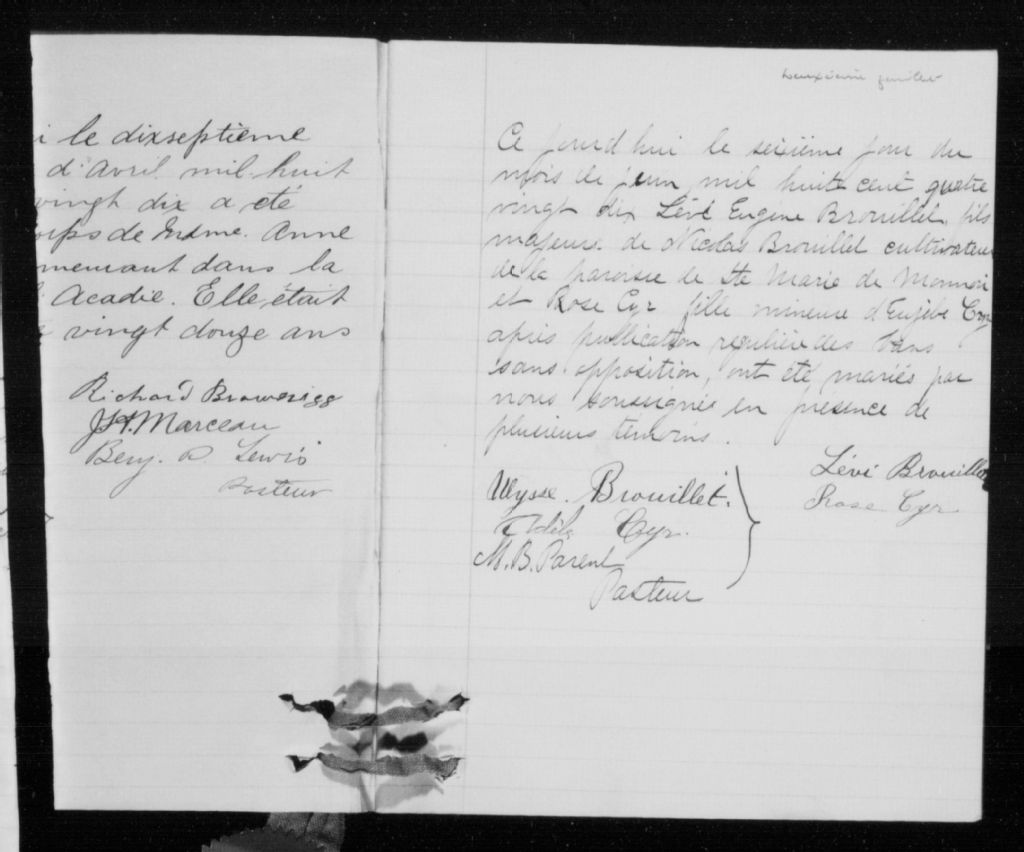 le dixseptième
d'Avril mil huit
vingt dix a été
corps de Mame. Anne
dans la
Acadie. Elle était
vingt douze ans
Richard Browrigg
J.H. Marceau
Benj. D. Lewis
Pasteur
Deuxième feuillet
Ce jourd'hui le seixième jour du
mois de juin mil huite cent quatre
vingt dix Lévé Eugène Brouillet, fils
majeure de Nicolas Brouillet cultivateur
de la paroisse de Ste Marie de Monnoir
et Rose Cyr fille mineure d'Eusèbe Cyr
après publication regulière des bans
sans opposition, ont été mariés par
nous soussignés en presence de
plusieurs témoins.
Lévé Brouillet
Rose Cyr
Ulysse. Brouillet.
Cyr.
M.B. Parent
Pasteur